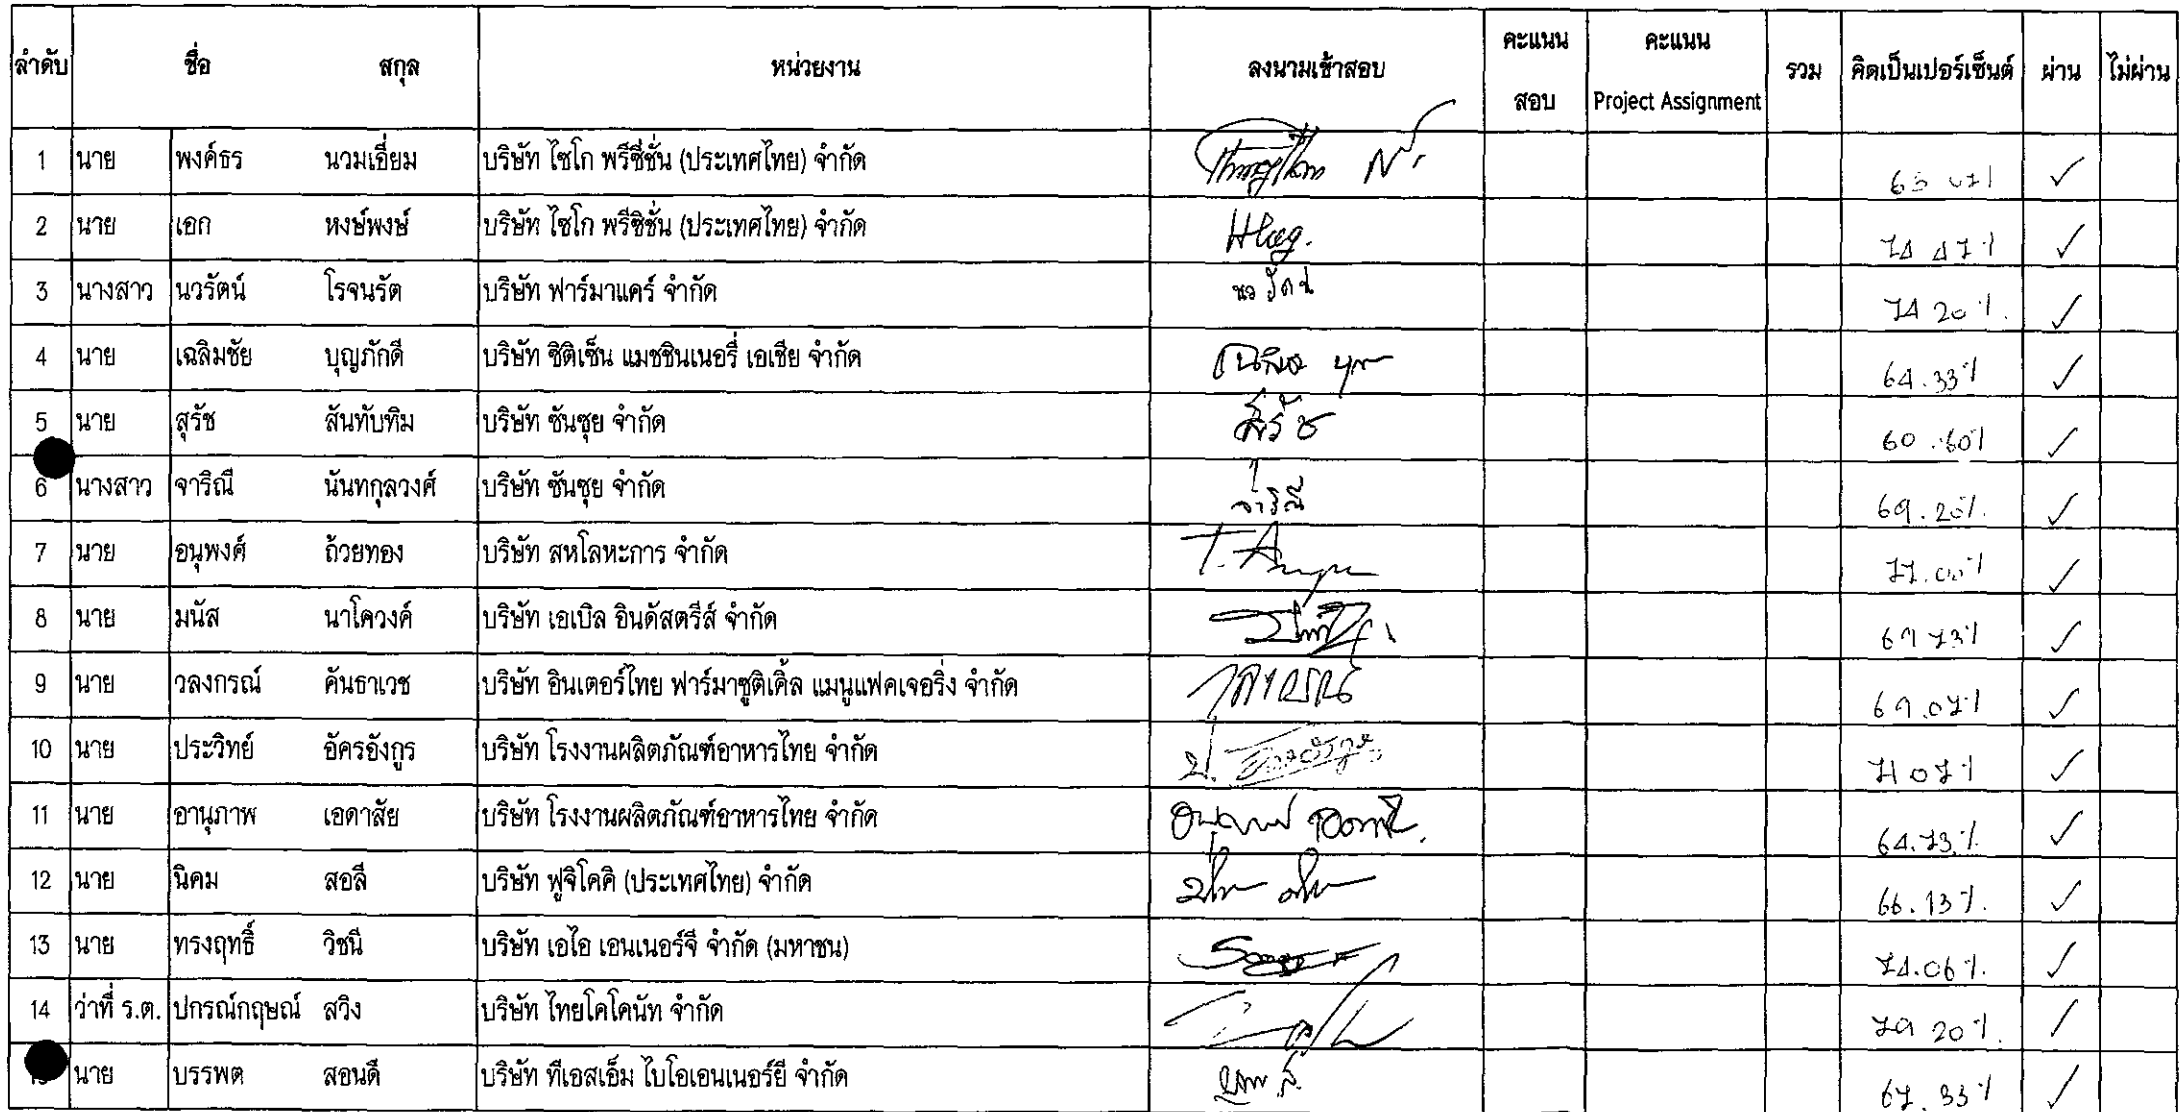 ลำดับ ชื่อ สกุล หน่วยงาน ลงนามเข้าสอบ คะแนน สอบ คะแนน Project Assignment รวม คิดเป็นเปอร์เซ็นต์ ผ่าน ไม่ผ่าน
1 นาย พงค์ธร นวมเอี่ยม บริษัท ไซโก พรีซีชั่น (ประเทศไทย) จำกัด ✓
2 นาย เอก หงษ์พงษ์ บริษัท ไซโก พรีซิชั่น (ประเทศไทย) จำกัด 74 47% ✓
3 นางสาว นวรัตน์ โรจนรัต บริษัท ฟาร์มาแคร์ จำกัด นวรัตน์ 74 20%. ✓
4 นาย เฉลิมชัย บุญภักดี บริษัท ซิติเซ็น แมชชินเนอรี่ เอเชีย จำกัด 64.33% ✓
5 นาย สุรัช สันทับทิม บริษัท ซันซุย จำกัด สุรัช 60.60% ✓
6 นางสาว จาริณี นันทกุลวงศ์ บริษัท ซันซุย จำกัด จาริณี 69.20%. ✓
7 นาย อนุพงศ์ ถ้วยทอง บริษัท สหโลหะการ จำกัด 77.00% ✓
8 นาย มนัส นาโควงค์ บริษัท เอเบิล อินดัสตรีส์ จำกัด 69 73% ✓
9 นาย วลงกรณ์ คันธาเวช บริษัท อินเตอร์ไทย ฟาร์มาซูติเคิ้ล แมนูแฟคเจอริ่ง จำกัด วลงกรณ์ 69.07% ✓
10 นาย ประวิทย์ อัครอังกูร บริษัท โรงงานผลิตภัณฑ์อาหารไทย จำกัด 71 07% ✓
11 นาย อานุภาพ เอดาสัย บริษัท โรงงานผลิตภัณฑ์อาหารไทย จำกัด 64.73%. ✓
12 นาย นิคม สอลี บริษัท ฟูจิโคคิ (ประเทศไทย) จำกัด 66.13%. ✓
13 นาย ทรงฤทธิ์ วิชนี บริษัท เอไอ เอนเนอร์จี จำกัด (มหาชน) 74.06%. ✓
14 ว่าที่ ร.ต. ปกรณ์กฤษณ์ สวิง บริษัท ไทยโคโคนัท จำกัด 79 20%. ✓
นาย บรรพต สอนดี บริษัท ทีเอสเอ็ม ไบโอเอนเนอร์ยี จำกัด 67.33% ✓